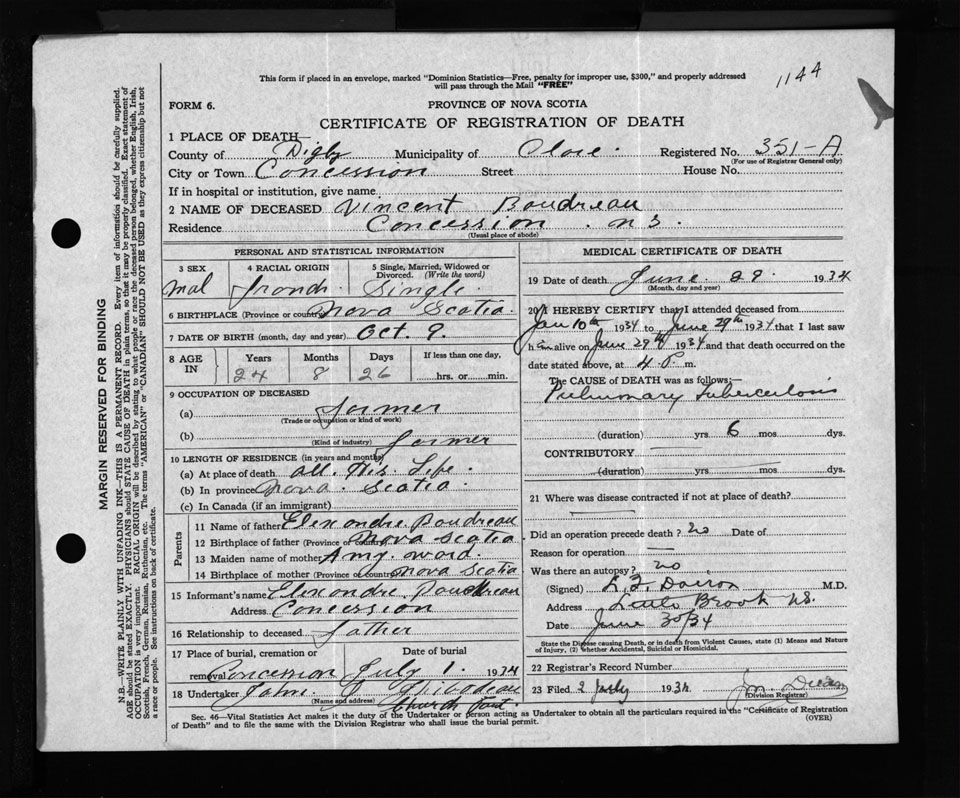 This form if placed in an envelope, marked "Dominion Statistics—Free, penalty for improper use, $300," and properly addressed
will pass through the Mail "FREE"
1144
FORM 6.
PROVINCE OF NOVA SCOTIA
CERTIFICATE OF REGISTRATION OF DEATH
1 PLACE OF DEATH—
County of Digby Municipality of Clare. Registered No. 351-A
(For use of Registrar General only)
City or Town Concession Street House No.
If in hospital or institution, give name
2 NAME OF DECEASED Vincent Boudreau
Residence Concession. N S.
(Usual place of abode)
PERSONAL AND STATISTICAL INFORMATION
3 SEX 4 RACIAL ORIGIN 5 Single, Married, Widowed or Divorced. (Write the word)
mal Single.
6 BIRTHPLACE (Province or country) Nova Scotia
7 DATE OF BIRTH (month, day and year) Oct 9.
8 AGE IN Years Months Days If less than one day,
24 8 26 hrs. or min.
9 OCCUPATION OF DECEASED
(a) Farmer
(Trade or occupation or kind of work)
(b) Farmer
(Kind of industry)
10 LENGTH OF RESIDENCE (in years and months)
(a) At place of death all. His Life.
(b) In province Nova. Scotia.
(c) In Canada (if an immigrant)
Parents
11 Name of father Elexandre Boudreau
12 Birthplace of father (Province or country) Nova Scotia
13 Maiden name of mother Amy
14 Birthplace of mother (Province or country) Nova Scotia
15 Informant's name Elexandre Boudreau
Address Concession
16 Relationship to deceased father
17 Place of burial, cremation or removal Date of burial
Concession July 1. 1934
18 Undertaker John Thibodeau
(Name and address) Church Point.
MEDICAL CERTIFICATE OF DEATH
19 Date of death June 29. 1934
(Month, day and year)
20 I HEREBY CERTIFY that I attended deceased from
Jan 10th 1934 to June 29th 1934 that I last saw
him alive on June 29th 1934 and that death occurred on the
date stated above, at 4 P. m.
The CAUSE OF DEATH was as follows:—
Pulmonary Tuberculosis
(duration) yrs 6 mos dys.
CONTRIBUTORY
(duration) yrs mos dys.
21 Where was disease contracted if not at place of death?
Did an operation precede death? no Date of
Reason for operation
Was there an autopsy? no
(Signed) M.D.
Address Little Brook N.S.
Date June 30/34
State the Disease causing Death, or in death from Violent Causes, state (1) Means and Nature
of Injury, (2) whether Accidental, Suicidal or Homicidal.
22 Registrar's Record Number
23 Filed 2 July 1934
(Division Registrar)
Sec. 46—Vital Statistics Act makes it the duty of the Undertaker or person acting as Undertaker to obtain all the particulars required in the "Certificate of Registration
of Death" and to file the same with the Division Registrar who shall issue the burial permit.
(OVER)
MARGIN RESERVED FOR BINDING
N.B.—WRITE PLAINLY WITH UNFADING INK—THIS IS A PERMANENT RECORD. Every item of information should be carefully supplied.
AGE should be stated EXACTLY. PHYSICIANS should state CAUSE OF DEATH in plain terms, so that it may be properly classified. Exact statement of
OCCUPATION is very important. RACIAL ORIGIN will be described by stating to what people or race the deceased person belonged, whether English, Irish,
Scottish, French, German, Russian, Ruthenian, etc. The terms "AMERICAN" or "CANADIAN" SHOULD NOT BE USED as they express citizenship but not
a race or people. See instructions on back of certificate.